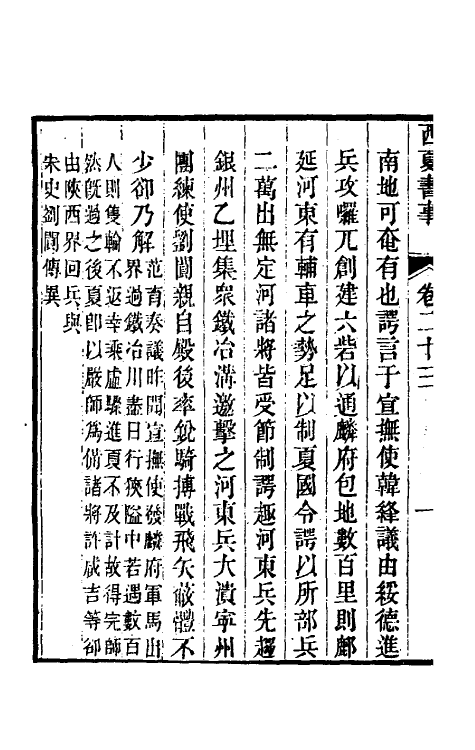 西夏書事　卷二十三　一
南地可奄有也諤言于宣撫使韓絳議由綏德進
兵攻囉兀創建六砦以通麟府包地數百里則鄜
延河東有輔車之勢足以制夏國令諤以所部兵
二萬出無定河諸將皆受節制諤趣河東兵先趨
銀州乙埋集衆鐵冶溝邀擊之河東兵大潰寧州
團練使劉闃親自殿後率銳騎搏戰飛矢蔽體不
少卻乃解范育奏議昨聞宣撫使發麟府軍馬出
界過鐵冶川盡日行狹隘中若遇數百
人則隻輪不返幸乘虛驟進夏不及計故得完師
然旣過之後夏卽以嚴師爲備諸將許咸吉等卻
由陝西界回兵與
朱史劉闃傳異